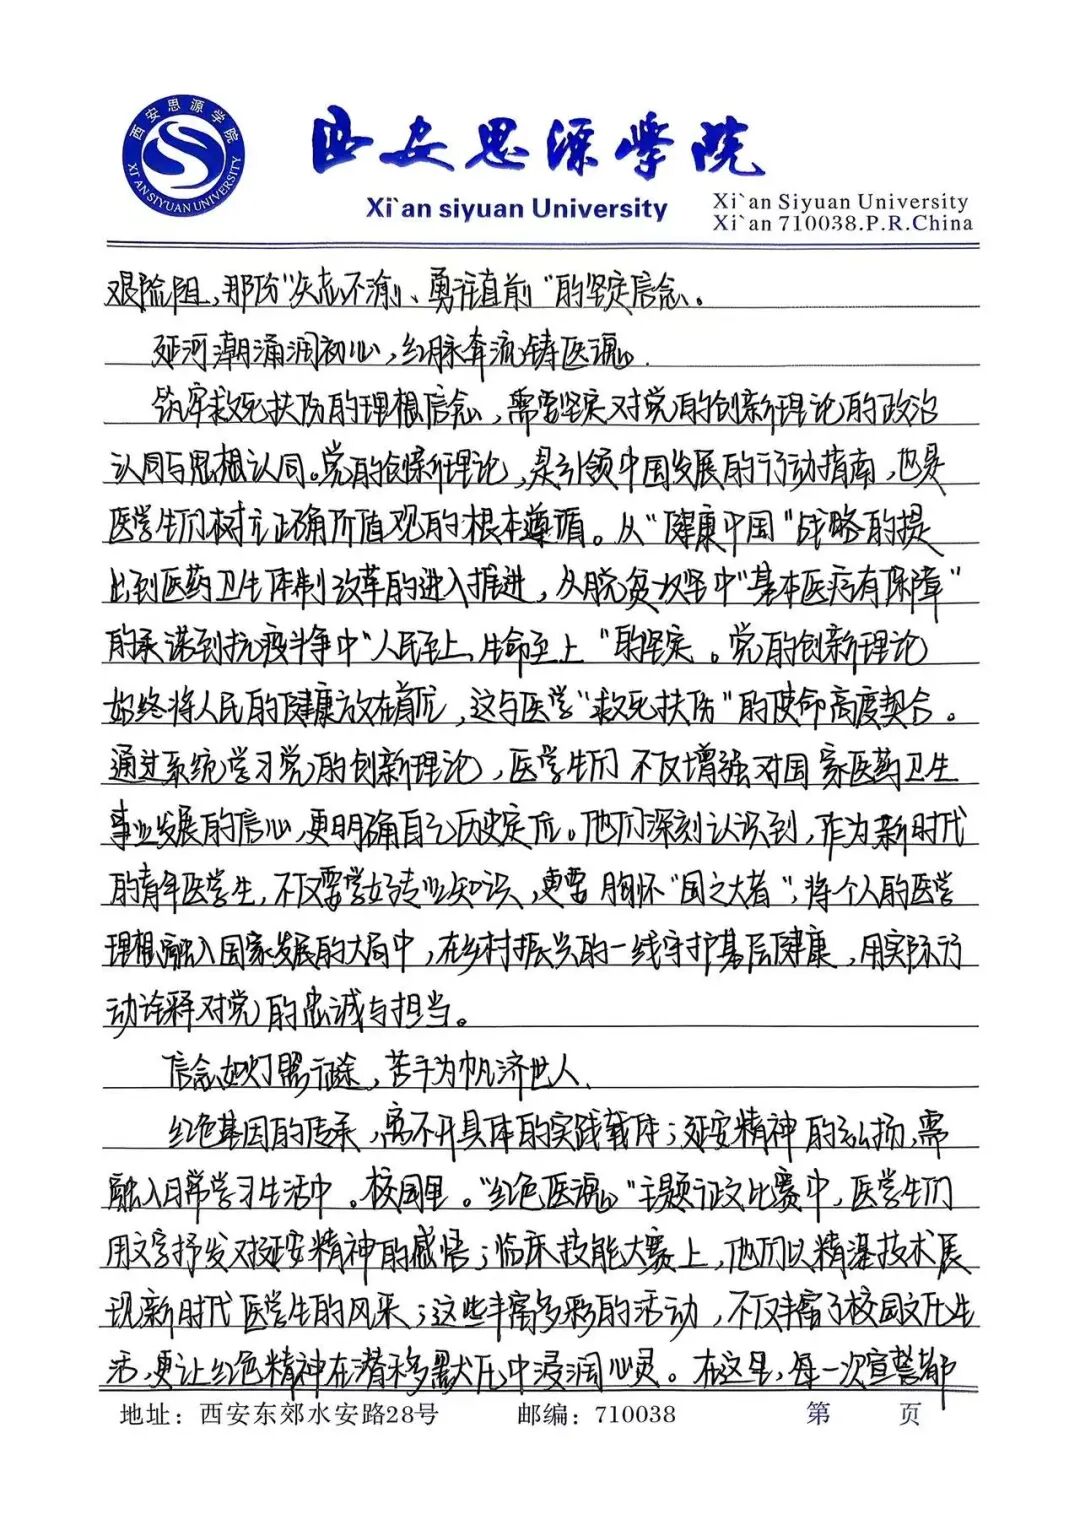 西安思源学院
XI'AN SIYUAN UNIVERSITY
西安思源学院
Xi`an siyuan University
Xi`an Siyuan University
Xi`an 710038.P.R.China
艰险阻，那份“矢志不渝、勇往直前”的坚定信念。
延河潮涌润初心，红脉奔流铸医魂。
筑牢救死扶伤的理想信念，需要坚定对党的创新理论的政治
认同与思想认同。党的创新理论，是引领中国发展的行动指南，也是
医学生们树立正确价值观的根本遵循。从“健康中国”战略的提
出到医药卫生体制改革的进入推进，从脱贫攻坚中“基本医疗有保障”
的承诺到抗疫斗争中“人民至上，生命至上”的坚定。党的创新理论
始终将人民的健康放在首位，这与医学“救死扶伤”的使命高度契合。
通过系统学习党的创新理论，医学生们不仅增强对国家医药卫生
事业发展的信心，更明确自己历史定位。他们深刻认识到，作为新时代
的青年医学生，不仅要学好专业知识，更要胸怀“国之大者”，将个人的医学
理想融入国家发展的大局中，在乡村振兴的一线守护基层健康，用实际行
动诠释对党的忠诚与担当。
信念如灯照征途，苦手为帆济世人。
红色基因的传承，离不开具体的实践载体；延安精神的弘扬，需
融入日常学习生活中。校园里。“红色医魂”主题征文比赛中，医学生们
用文字抒发对延安精神的感悟；临床技能大赛上，他们以精湛技术展
现新时代医学生的风采；这些丰富多彩的活动，不仅丰富了校园文化生
活，更让红色精神在潜移默化中浸润心灵。在这里，每一次宣誓都
地址：西安东郊水安路28号 邮编：710038 第 页